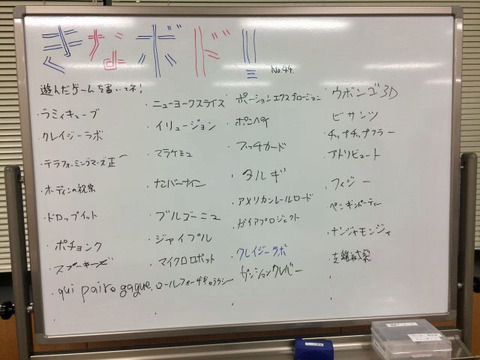 きなボドリ
No.44.
遊んだゲームを書いてネ!
・ラミィキューブ
・クレイジーラボ
・テラフォーミングマーズ 正一
・ドロップイット
・ポチョンク
・スプーキーズ
・qui paire gagne
・ニューヨークスライス
・イリュージョン
・マラケシュ
・ナンバーナイン
・ブルゴーニュ
・ジャイプル
・マイクロロボット
・ロールフォーザギャラクシー
・ポーションエクスプロージョン
・ポンペイ
・タルギ
・アメリカンレールロード
・ガイアプロジェクト
・クレイジーラボ
・ウボンゴ3D
・ビザンツ
・アトリビュート
・フィジー
・ペンギンパーティー
・ナンジャモンジャ